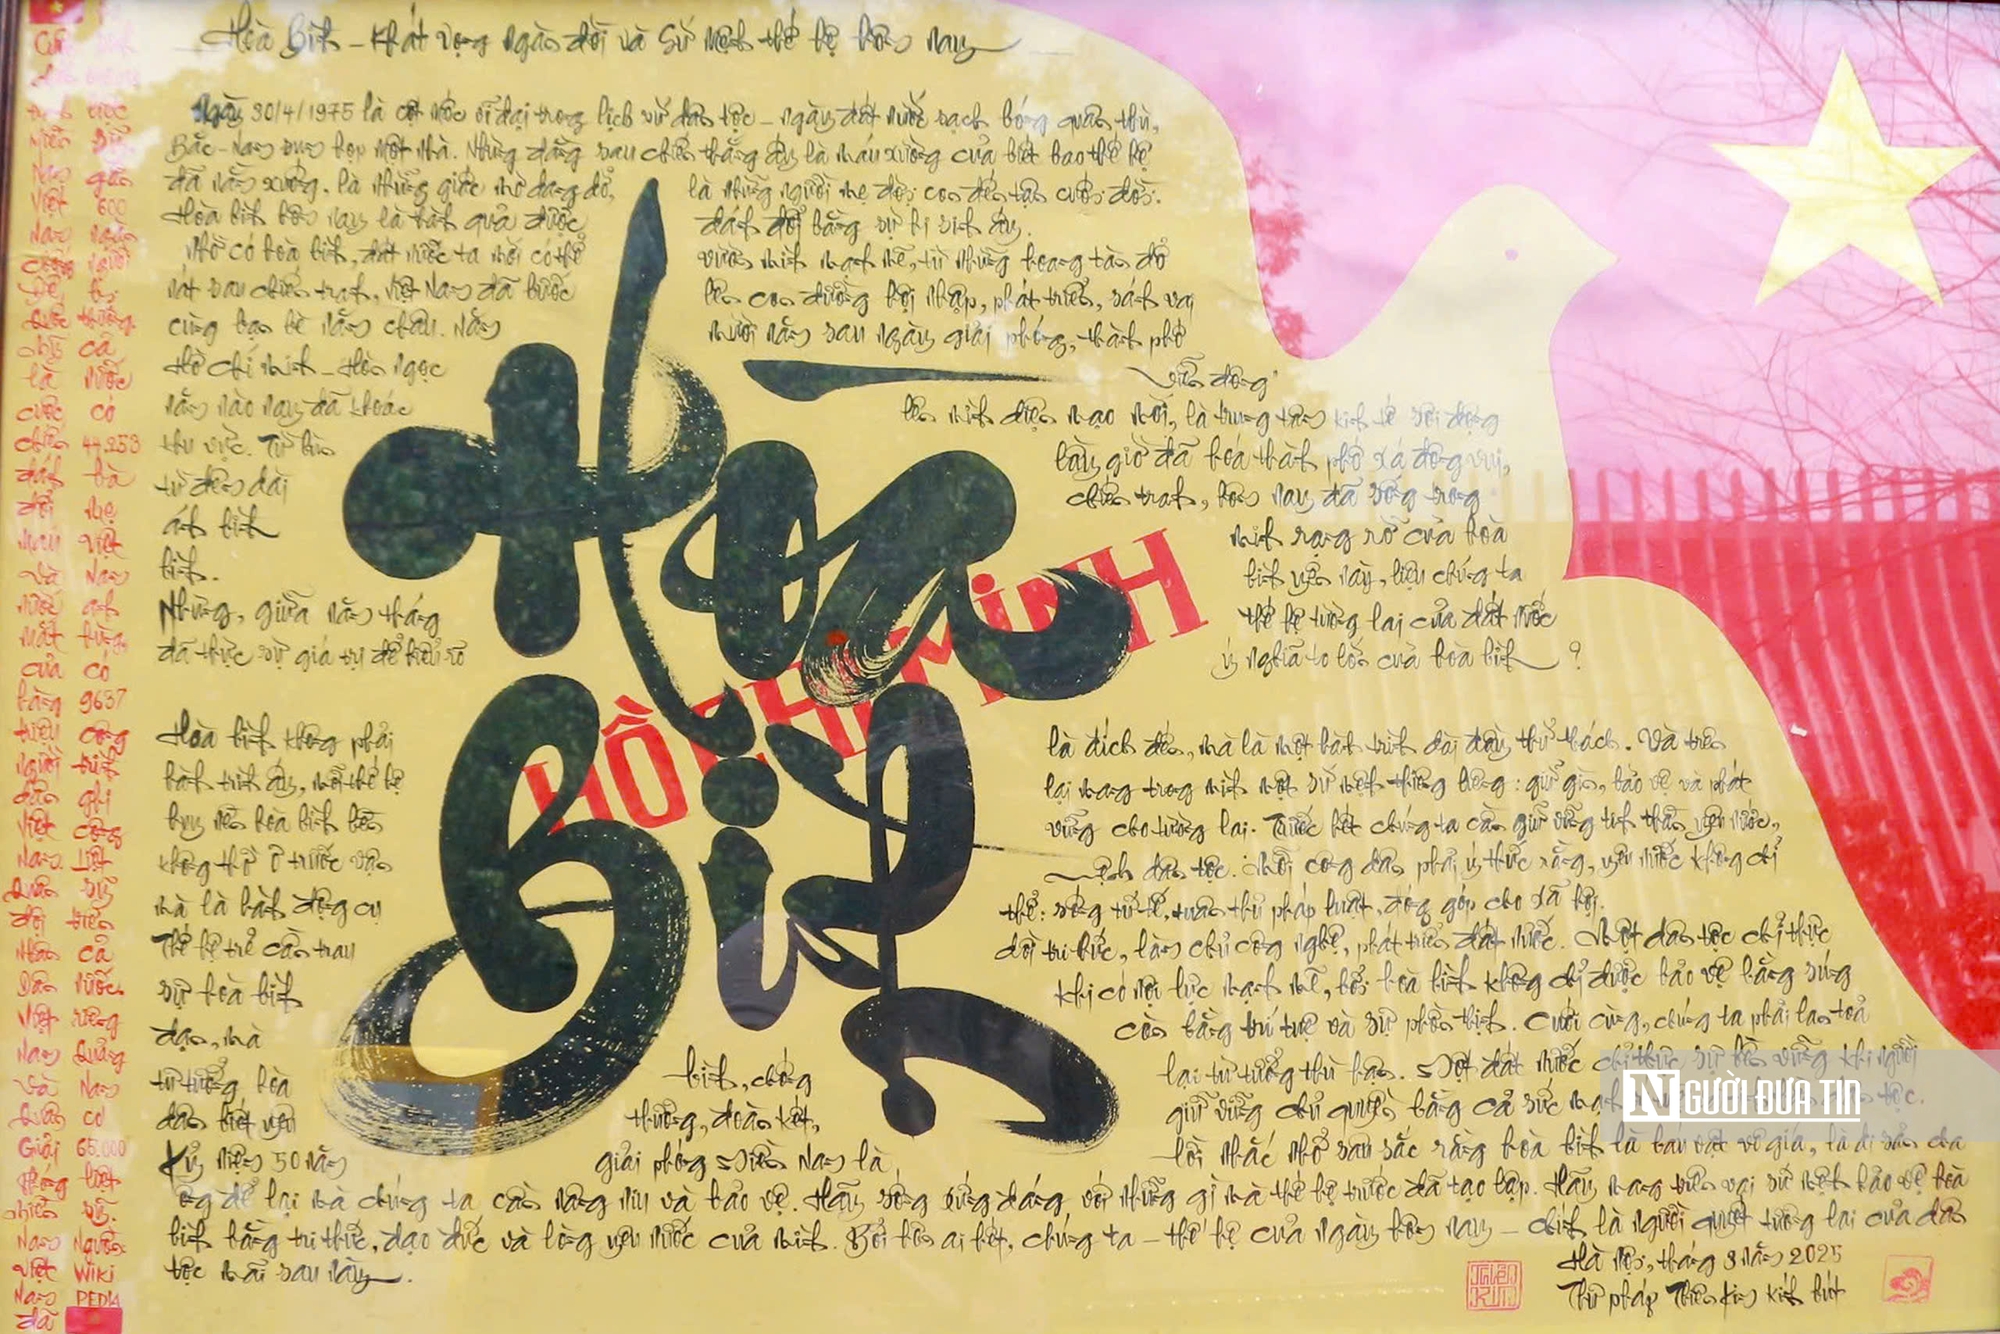 Hoà Bình - Khát vọng ngàn đời và Sứ mệnh thế hệ hôm nay
Ngày 30/4/1975 là cột mốc vĩ đại trong lịch sử dân tộc - ngày đất nước sạch bóng quân thù,
Bắc - Nam sum họp một nhà. Nhưng đằng sau chiến thắng ấy là máu xương của biết bao thế hệ
đã nằm xuống, là những giấc mơ dang dở, là những người mẹ đợi con đến tận cuối đời.
Hoà bình hôm nay là thành quả được đánh đổi bằng sự hi sinh ấy.
Nhờ có hoà bình, đất nước ta mới có thể vươn mình mạnh mẽ, từ những hoang tàn đổ
nát sau chiến tranh, Việt Nam đã bước lên con đường hội nhập, phát triển, sánh vai
cùng bạn bè năm châu. Năm mươi năm sau ngày giải phóng, thành phố
Hồ Chí Minh - Hòn ngọc Viễn đông
năm nào nay đã khoác lên mình diện mạo mới, là trung tâm kinh tế sôi động
khu vực. Từ bùn lầy giờ đã hoá thành phố xá đông vui,
từ đêm dài chiến tranh, hôm nay đã sống trong
ánh bình minh rạng rỡ của hoà
bình.
Nhưng, giữa năm tháng bình yên này, liệu chúng ta
thế hệ tương lai của đất nước
đã thực sự giá trị để hiểu rõ ý nghĩa to lớn của hoà bình ?
Hoà bình không phải là đích đến, mà là một hành trình dài đầy thử thách. Và trên
hành trình ấy, mỗi thế hệ lại mang trong mình một sứ mệnh thiêng liêng: giữ gìn, bảo vệ và phát
huy nền hoà bình bền vững cho tương lai. Trước hết chúng ta cần giữ vững tinh thần yêu nước,
không thờ ơ trước vận mệnh dân tộc. Mỗi công dân phải ý thức rằng, yêu nước không chỉ
mà là hành động cụ thể: sống tử tế, tuân thủ pháp luật, đóng góp cho xã hội.
Thế hệ trẻ cần trau dồi tri thức, làm chủ công nghệ, phát triển đất nước. Một dân tộc chỉ thực
sự hoà bình khi có nội lực mạnh mẽ, bởi hoà bình không chỉ được bảo vệ bằng súng
đạn, mà còn bằng trí tuệ và sự phồn thịnh. Cuối cùng, chúng ta phải lan toả
tư tưởng hoà bình, chống lại tư tưởng thù hận. Một đất nước chỉ thực sự bền vững khi người
dân biết yêu thương, đoàn kết, giữ vững chủ quyền bằng cả sức mạnh tộc.
Kỷ niệm 50 năm giải phóng Miền Nam là lời nhắc nhở sâu sắc rằng hoà bình là báu vật vô giá, là di sản cha
ông để lại mà chúng ta cần nâng niu và bảo vệ. Hãy sống xứng đáng với những gì mà thế hệ trước đã tạo lập. Hãy mang trên vai sứ mệnh bảo vệ hoà
bình bằng tri thức, đạo đức và lòng yêu nước của mình. Bởi hơn ai hết, chúng ta - thế hệ của ngày hôm nay - chính là người quyết tương lai của dân
tộc mãi sau này.
Hà Nội, tháng 3 năm 2025
Thư pháp Thiên Kim Kính bút
Hoà
Bình
HỒ CHÍ MINH
NGƯỜI ĐƯA TIN
Việt 600
là nước
cuộc có
chiến 44.253
đánh bà
đổi mẹ
máu Việt
và Nam
nước anh
mắt hùng,
của có
hàng 9637
triệu công
người trình
dân ghi
Việt công
Nam. Liệt
Quân sỹ
đội trên
Nhân cả
Dân nước.
Việt riêng
Nam Quảng
và Nam
Quân có
Giải 65.000
Phóng liệt
Miền sỹ.
Nam Nguồn
Việt WIKI
Nam PEDIA
đã